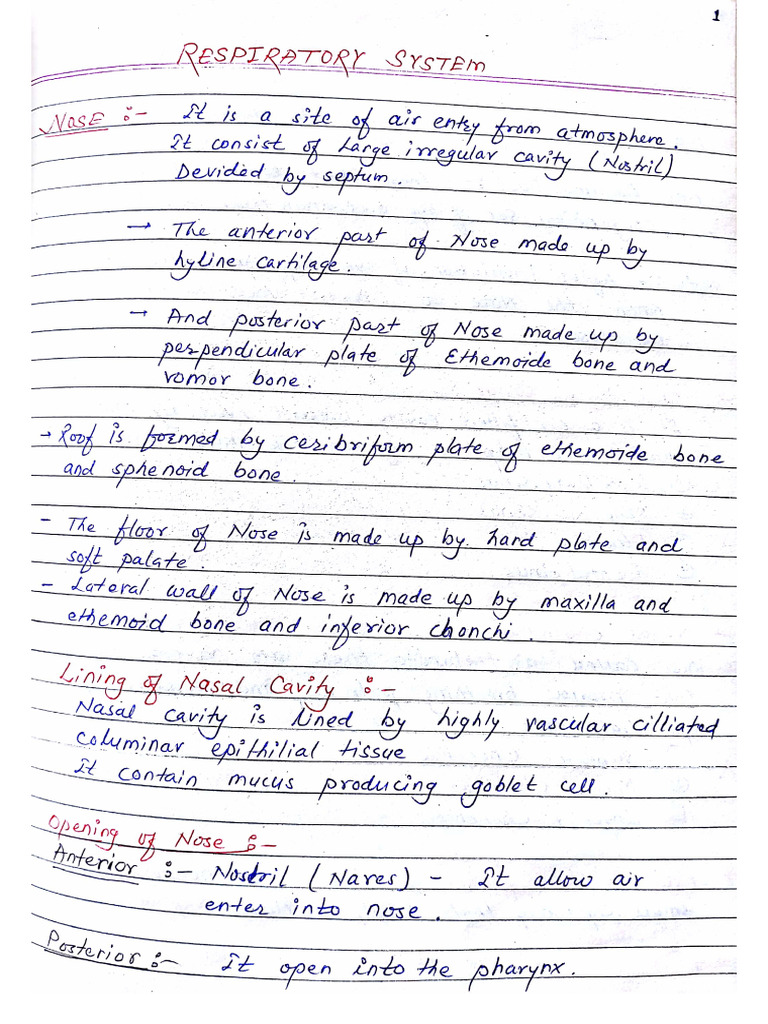 1
RESPIRATORY SYSTEM
NOSE :- It is a site of air entry from atmosphere.
It consist of Large irregular cavity (Nostril)
Devided by septum.
→ The anterior part of Nose made up by
hyline cartilage.
→ And posterior part of Nose made up by
perpendicular plate of Ethemoide bone and
vomor bone.
→ Roof is formed by ceribriform plate of ethemoide bone
and sphenoid bone.
- The floor of Nose is made up by hard plate and
soft palate.
- Lateral wall of Nose is made up by maxilla and
ethemoid bone and inferior chonchi.
Lining of Nasal Cavity :-
Nasal cavity is lined by highly vascular cilliated
columinar epithilial tissue
It contain mucus producing goblet cell.
Opening of Nose :-
Anterior :- Nostril (Nares) - It allow air
enter into nose.
Posterior :- It open into the pharynx.